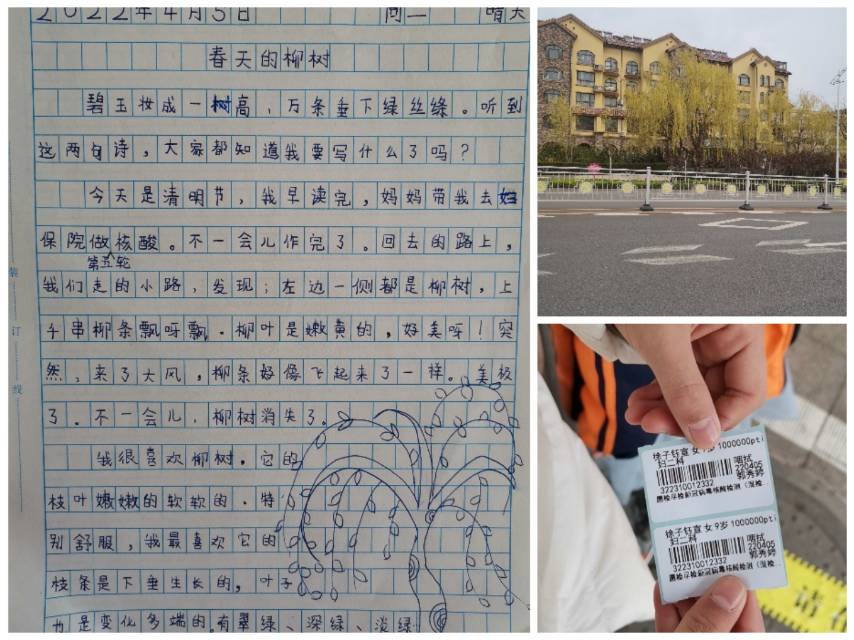 2022年4月5日 周二 晴天
春天的柳树
碧玉妆成一树高，万条垂下绿丝绦。听到
这两句诗，大家都知道我要写什么了吗？
今天是清明节，我早读完，妈妈带我去妇
保院做核酸。不一会儿作完了。回去的路上，
第五轮
我们走的小路，发现：左边一侧都是柳树，上
千串柳条飘呀飘．柳叶是嫩黄的，好美呀！突
然，来了大风，柳条好像飞起来了一样。美极
了．不一会儿，柳树消失了。
我很喜欢柳树．它的
枝叶嫩嫩的软软的．特
别舒服，我最喜欢它的
枝条是下垂生长的，叶子
也是变化多端的．有翠绿、深绿、淡绿
装
订
线
徐子钰宣 女 9岁 1000000pt
妇二科 咽拭
220405
322310012332 郭秀婷
徐子钰宣 女 9岁 1000000pt
妇二科 咽拭
220405
322310012332 郭秀婷